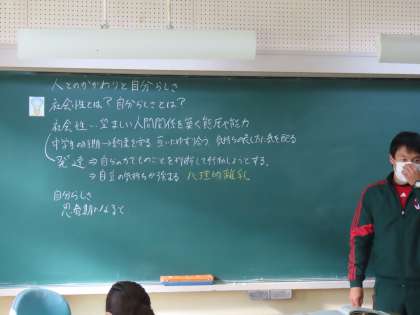 人とのかかわりと自分らしさ
社会性とは？自分らしさとは？
社会性…望ましい人間関係を築く態度や能力
中学生の時期→約束をする 互いにゆずり合う 気持ちや表し方に気を配る
発達⇒自らの力でものごとを判断して行動しようとする。
⇒自立の気持ちが強まる 心理的離乳
自分らしさ
思春期になると